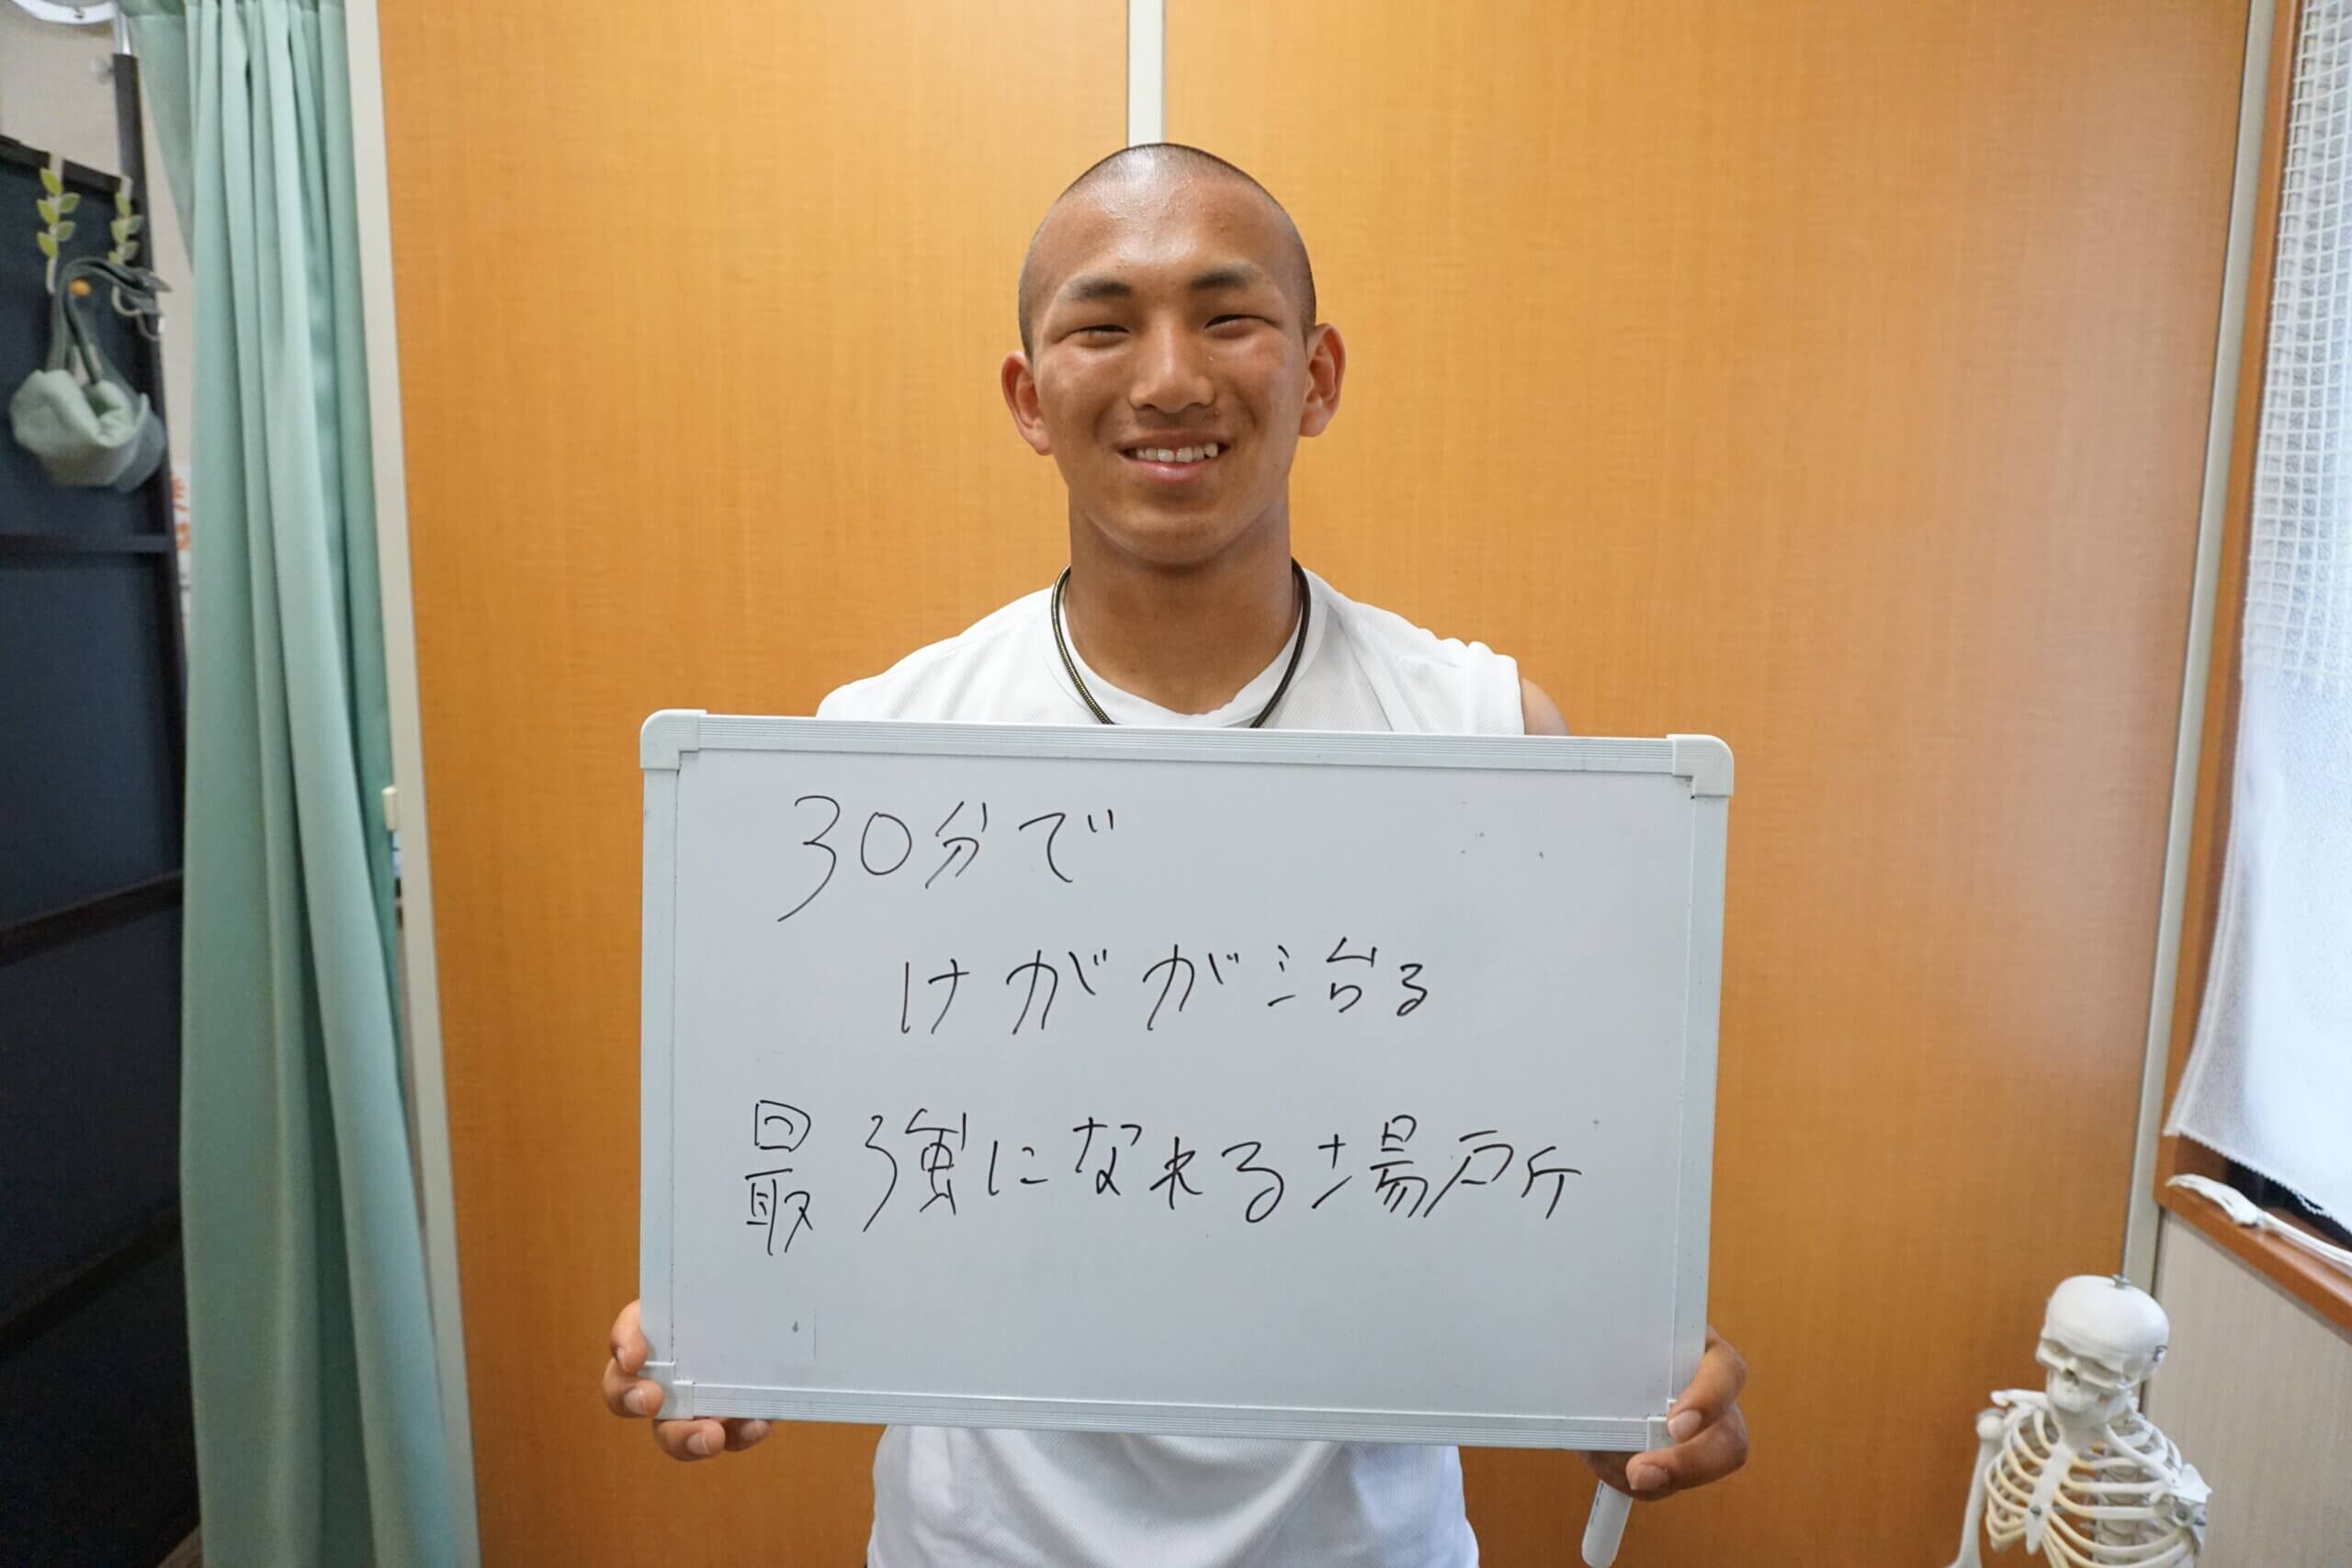 30分で
けがが治る
最強になれる場所